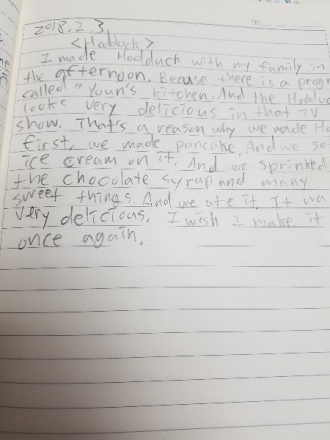 2018.2.3
<Hodduck>
I made Hodduck with my family in
the afternoon. Becuse there is a progr
called "Youn's kitchen. And the Hoddu
looks very delicious in that TV
show. That's a reason why we made Ho
first, we made pancake. And we se
ice cream on it. And we sprinkled
the chocolate syrup and many
sweet things. And we ate it. It wa
very delicious. I wish I make it
once again.